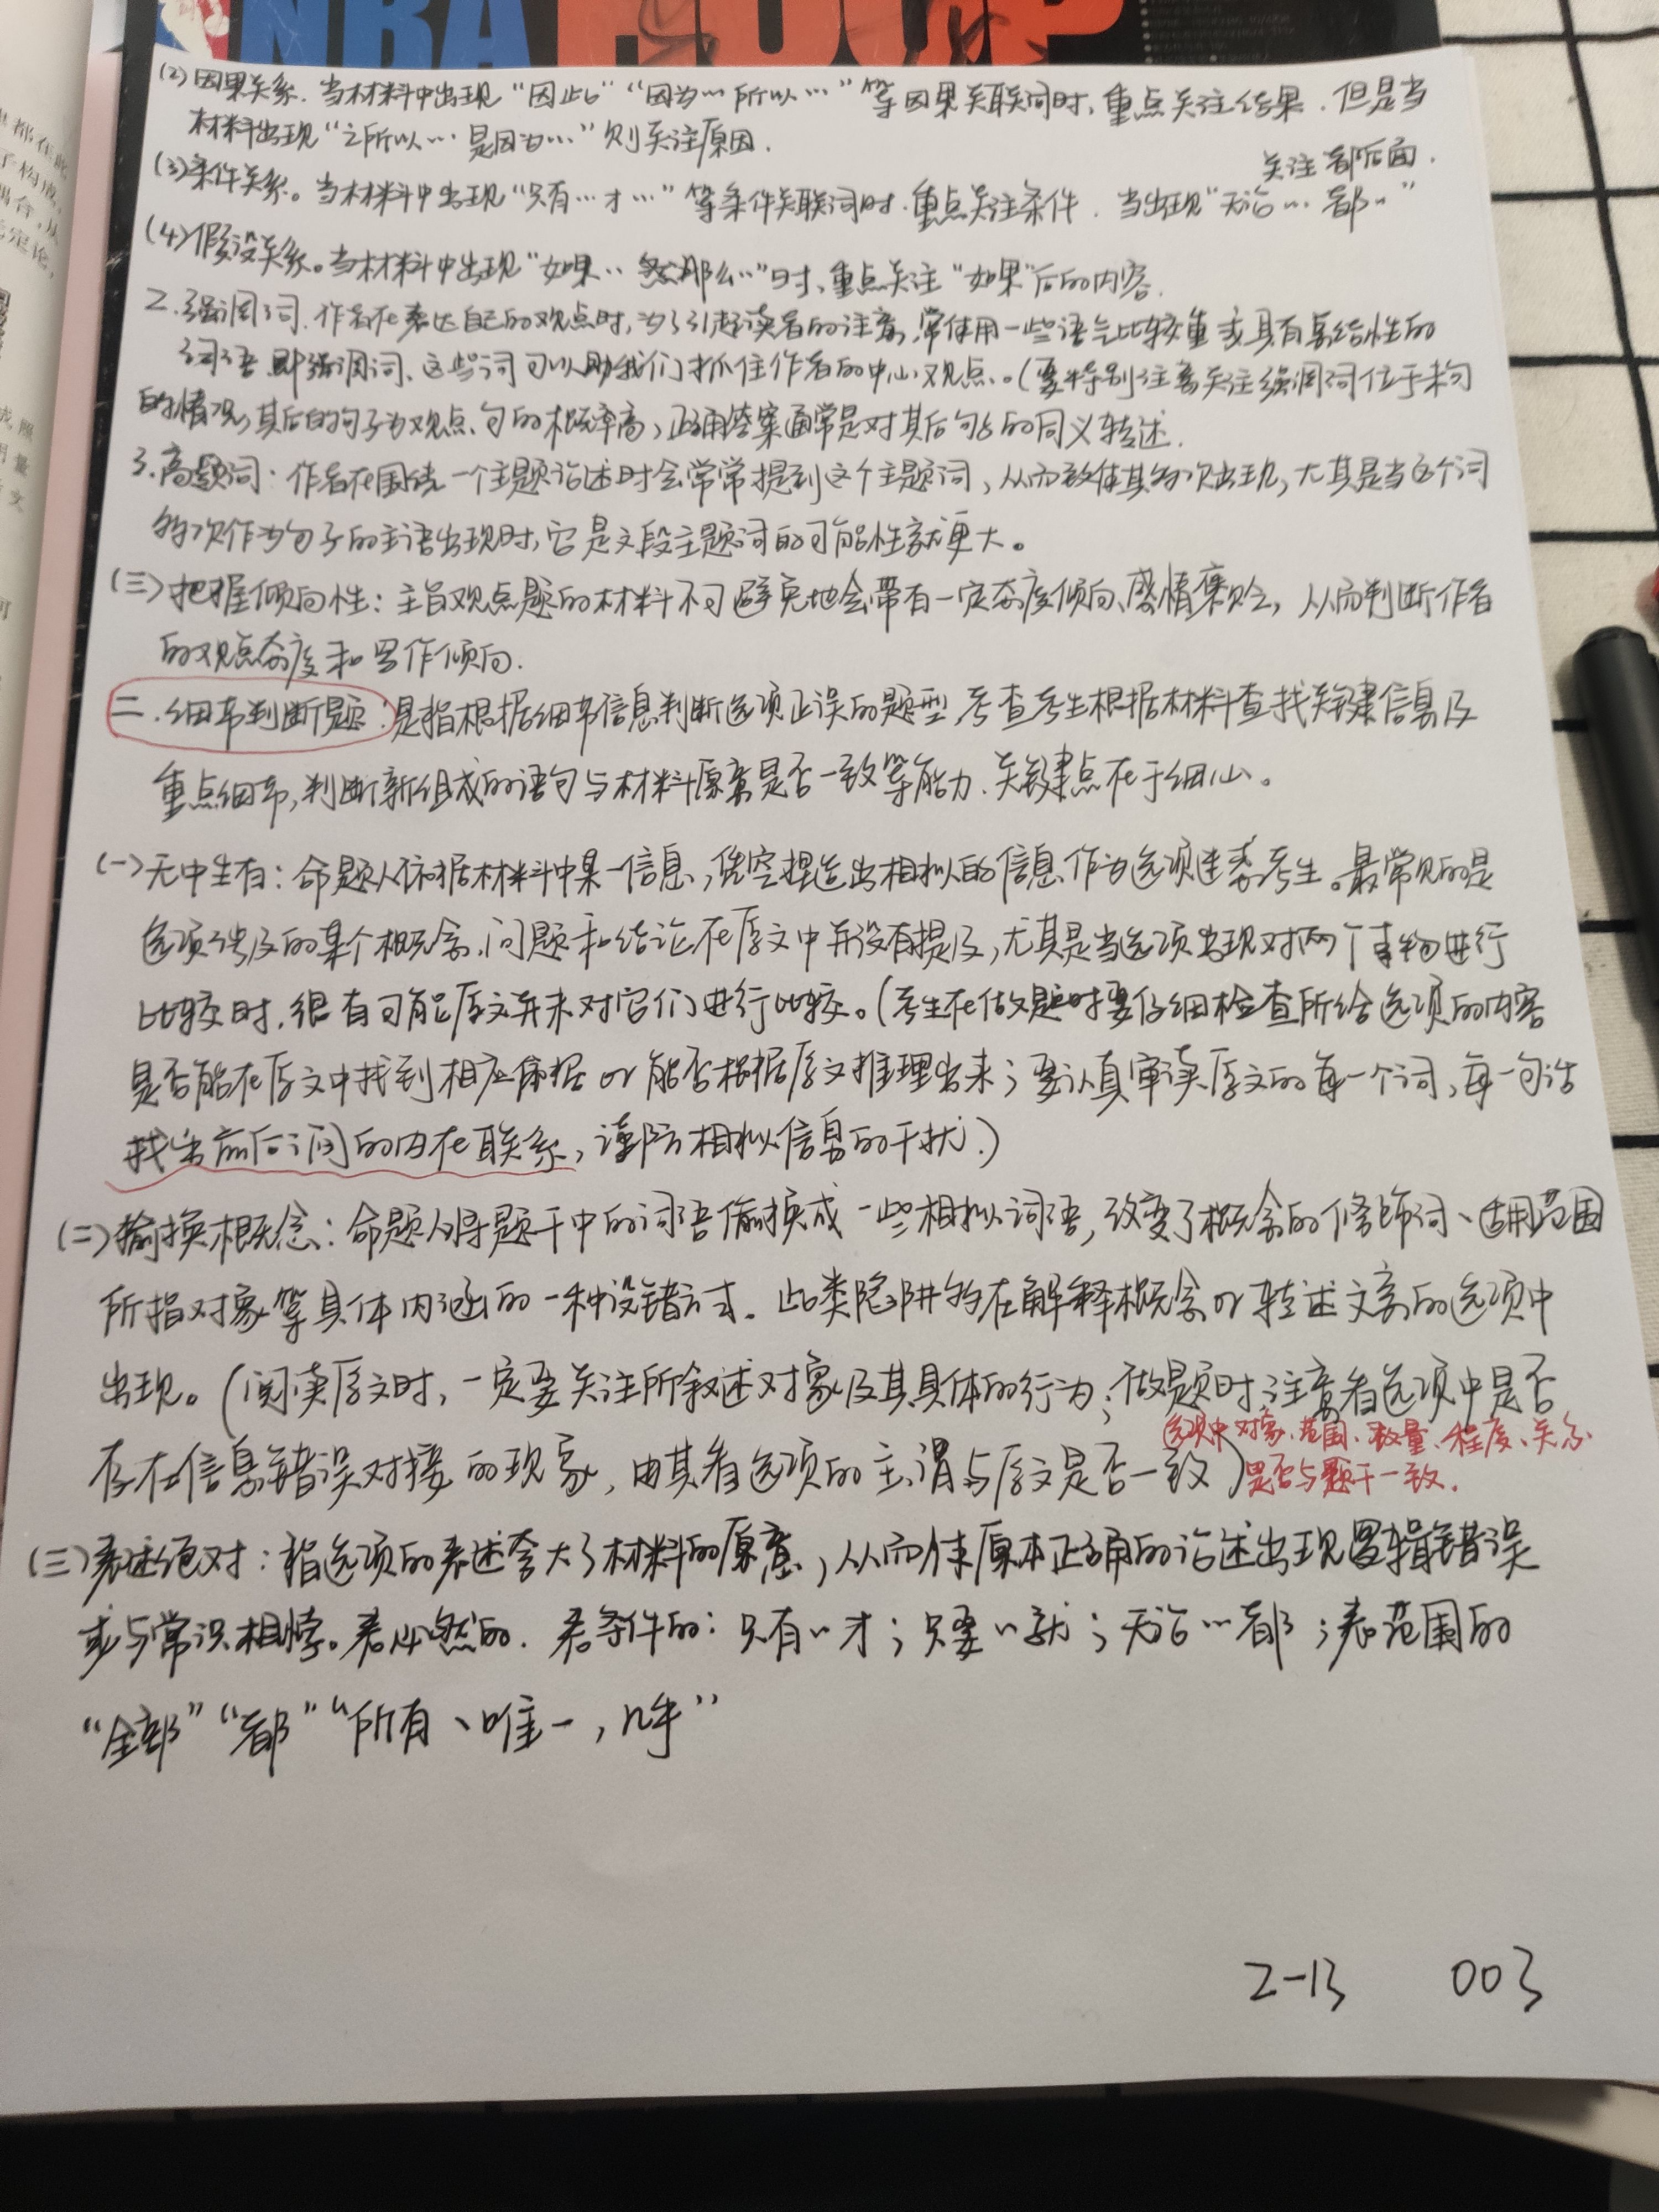 NBA HOOP
(2)因果关系.当材料中出现“因此”“因为…所以…”等因果关联词时,重点关注结果.但是当
材料出现“之所以…是因为…”则关注原因.
关注都后面.
(3)条件关系。当材料中出现“只有…才…”等条件关联词时.重点关注条件.当出现“无论…都…”
(4)假设关系。当材料中出现“如果…那么…”时,重点关注“如果”后的内容.
2.强调词.作者在表达自己的观点时,为了引起读者的注意,常使用一些语气比较重或具有总结性的
词语即强调词、这些词可以助我们抓住作者的中心观点.(要特别注意关注强调词位于末句
的情况,其后的句子为观点句的概率高,正确答案通常是对其后句子的同义转述.
3.高频词:作者在围绕一个主题论述时会常常提到这个主题词,从而致使其多次出现,尤其是当这个词
多次作为句子的主语出现时,它是文段主题词的可能性就更大。
(三)把握倾向性:主旨观点题的材料不可避免地会带有一定态度倾向、感情褒贬,从而判断作者
的观点态度和写作倾向.
二.细节判断题:是指根据细节信息判断选项正误的题型.考查考生根据材料查找关键信息及
重点细节,判断新组成的语句与材料原意是否一致等能力.关键点在于细心。
(一)无中生有:命题人依据材料中某一信息,凭空捏造出相似的信息作为选项迷惑考生。最常见的是
选项涉及的某个概念、问题和结论在原文中并没有提及,尤其是当选项出现对两个事物进行
比较时.很有可能原文并未对它们进行比较。(考生在做题时要仔细检查所给选项的内容
是否能在原文中找到相应依据or能否根据原文推理出来;要认真审读原文的每一个词,每一句话
找出前后词间的内在联系,谨防相似信息的干扰.)
(二)偷换概念:命题人将题干中的词语偷换成一些相似词语,改变了概念的修饰词、适用范围
所指对象等具体内涵的一种设错方式.此类陷阱多在解释概念or转述文意的选项中
出现。(阅读原文时,一定要关注所叙述对象及其具体的行为;做题时,注意看选项中是否
选项中对象、范围、数量、程度、关系
存在信息错误对接的现象,由其看选项的主谓与原文是否一致)
是否与题干一致.
(三)表述绝对:指选项的表述夸大了材料的原意,从而使原本正确的论述出现逻辑错误
或与常识相悖。表必然的.表条件的:只有…才;只要…就;无论…都;表范围的
“全部”“都”“所有、唯一,几乎”
2-13 003